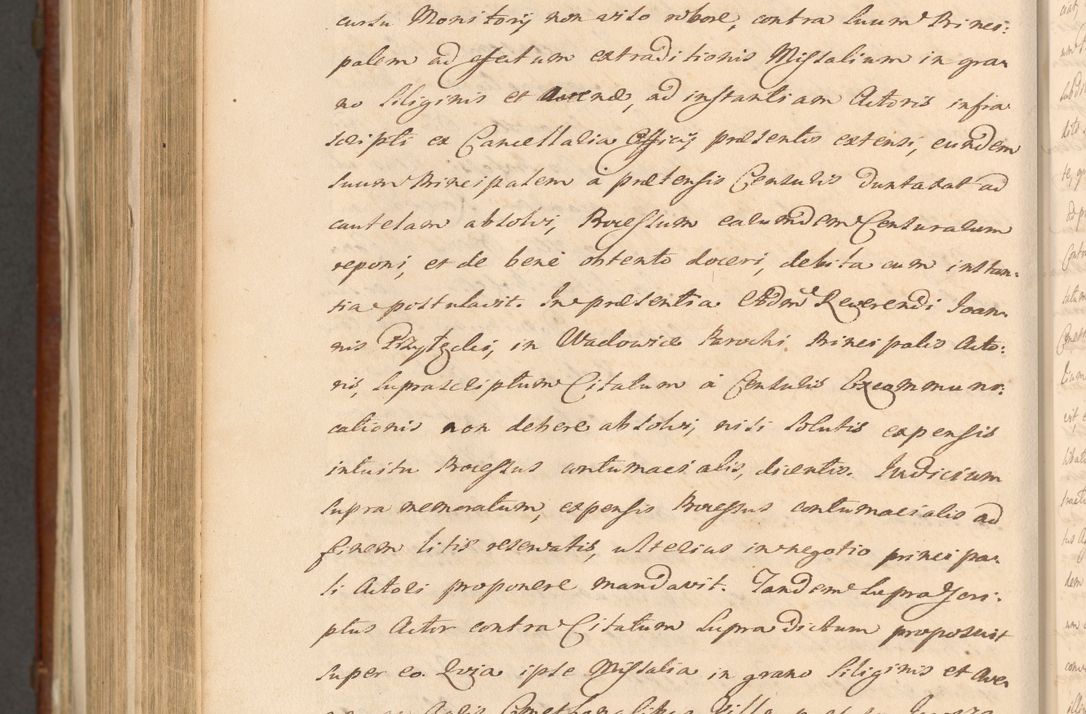 cursu Monitorij non viso robore, contra suum Princi:
palem ad effectum extraditionis Missalium in gra-
no Siliginis et Avenæ, ad instantiam Actoris infra
scripti ex Cancellaria Officij præsentis extensi, eundem
suum Principalem à prætensis Censuris duntaxat ad
cautelam absolvi, Processum earumdem Censurarum
reponi, et de bene obtento doceri, debita cum instan:
tia postulavit. In præsentia Reverendi Joan-
nis in Wadowice Parochi Principalis Acto:
ris, suprascriptum Citatum à Censuris Excommuni:
cationis non debere absolvi, nisi solutis expensis
intuitu Processus contumacialis, dicentis. Judicium
supra memoratum, expensis Processus contumacialis ad
finem litis reservatis, ulterius in negotio principa-
li Actori proponere mandavit. Tandem supra scri:
ptus Actor contra Citatum supra dictum proposuit
super eo. Quia ipse Missalia in grano Siliginis et Ave-